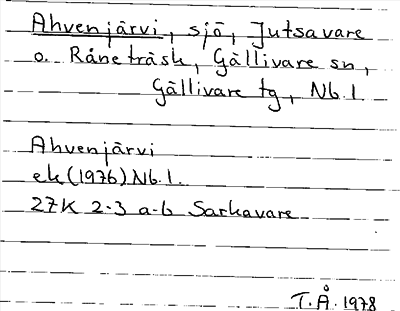 Ahvenjärvi, sjö, Jutsavare
o. Råneträsk, Gällivare sn,
Gällivare tg, Nb.l.
Ahvenjärvi
ek (1976) Nb.l.
27K 2-3 a-b Sarkavare
T.Å. 1978